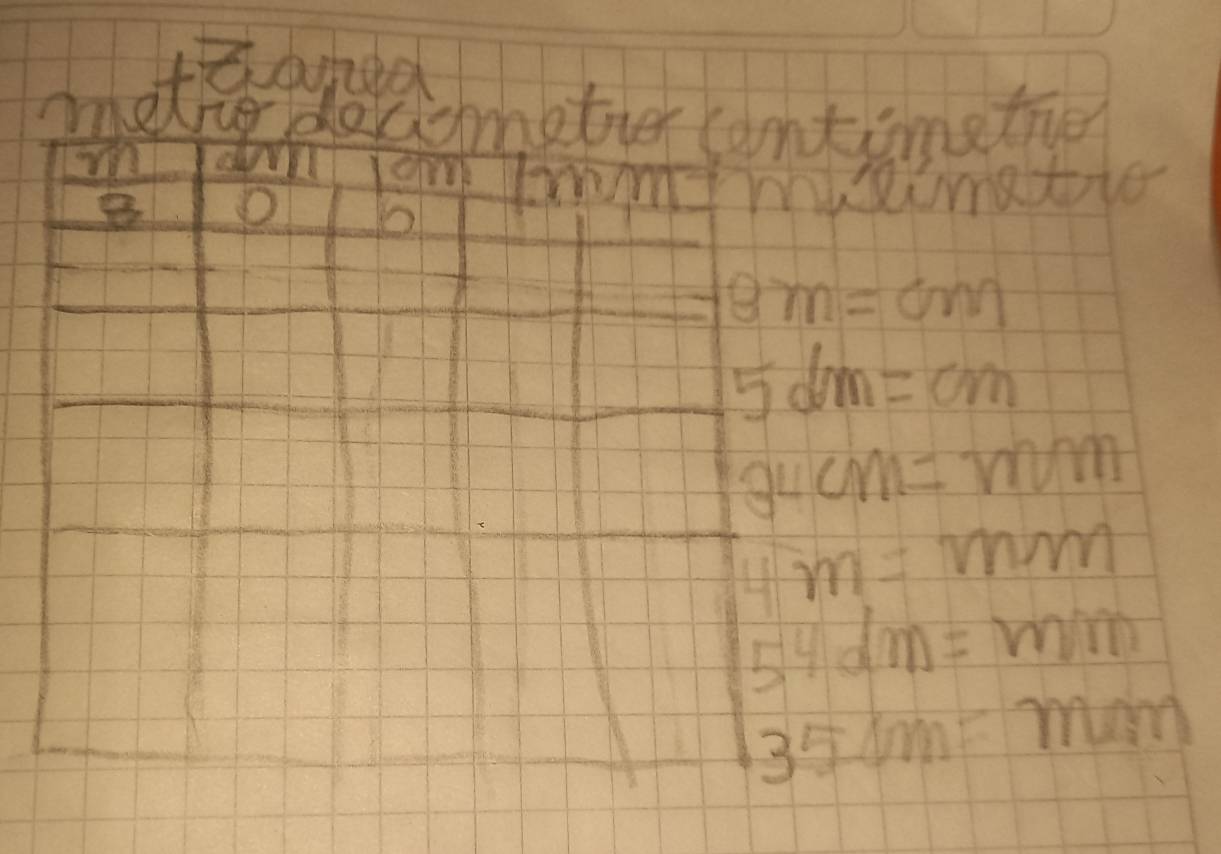 tarea
metro decimetro centimetro
m dm cm mm milimetro
8 0 0
8 m = cm
5 dm = cm
94 cm = mm
4 m = mm
54 dm = mm
35 cm = mm